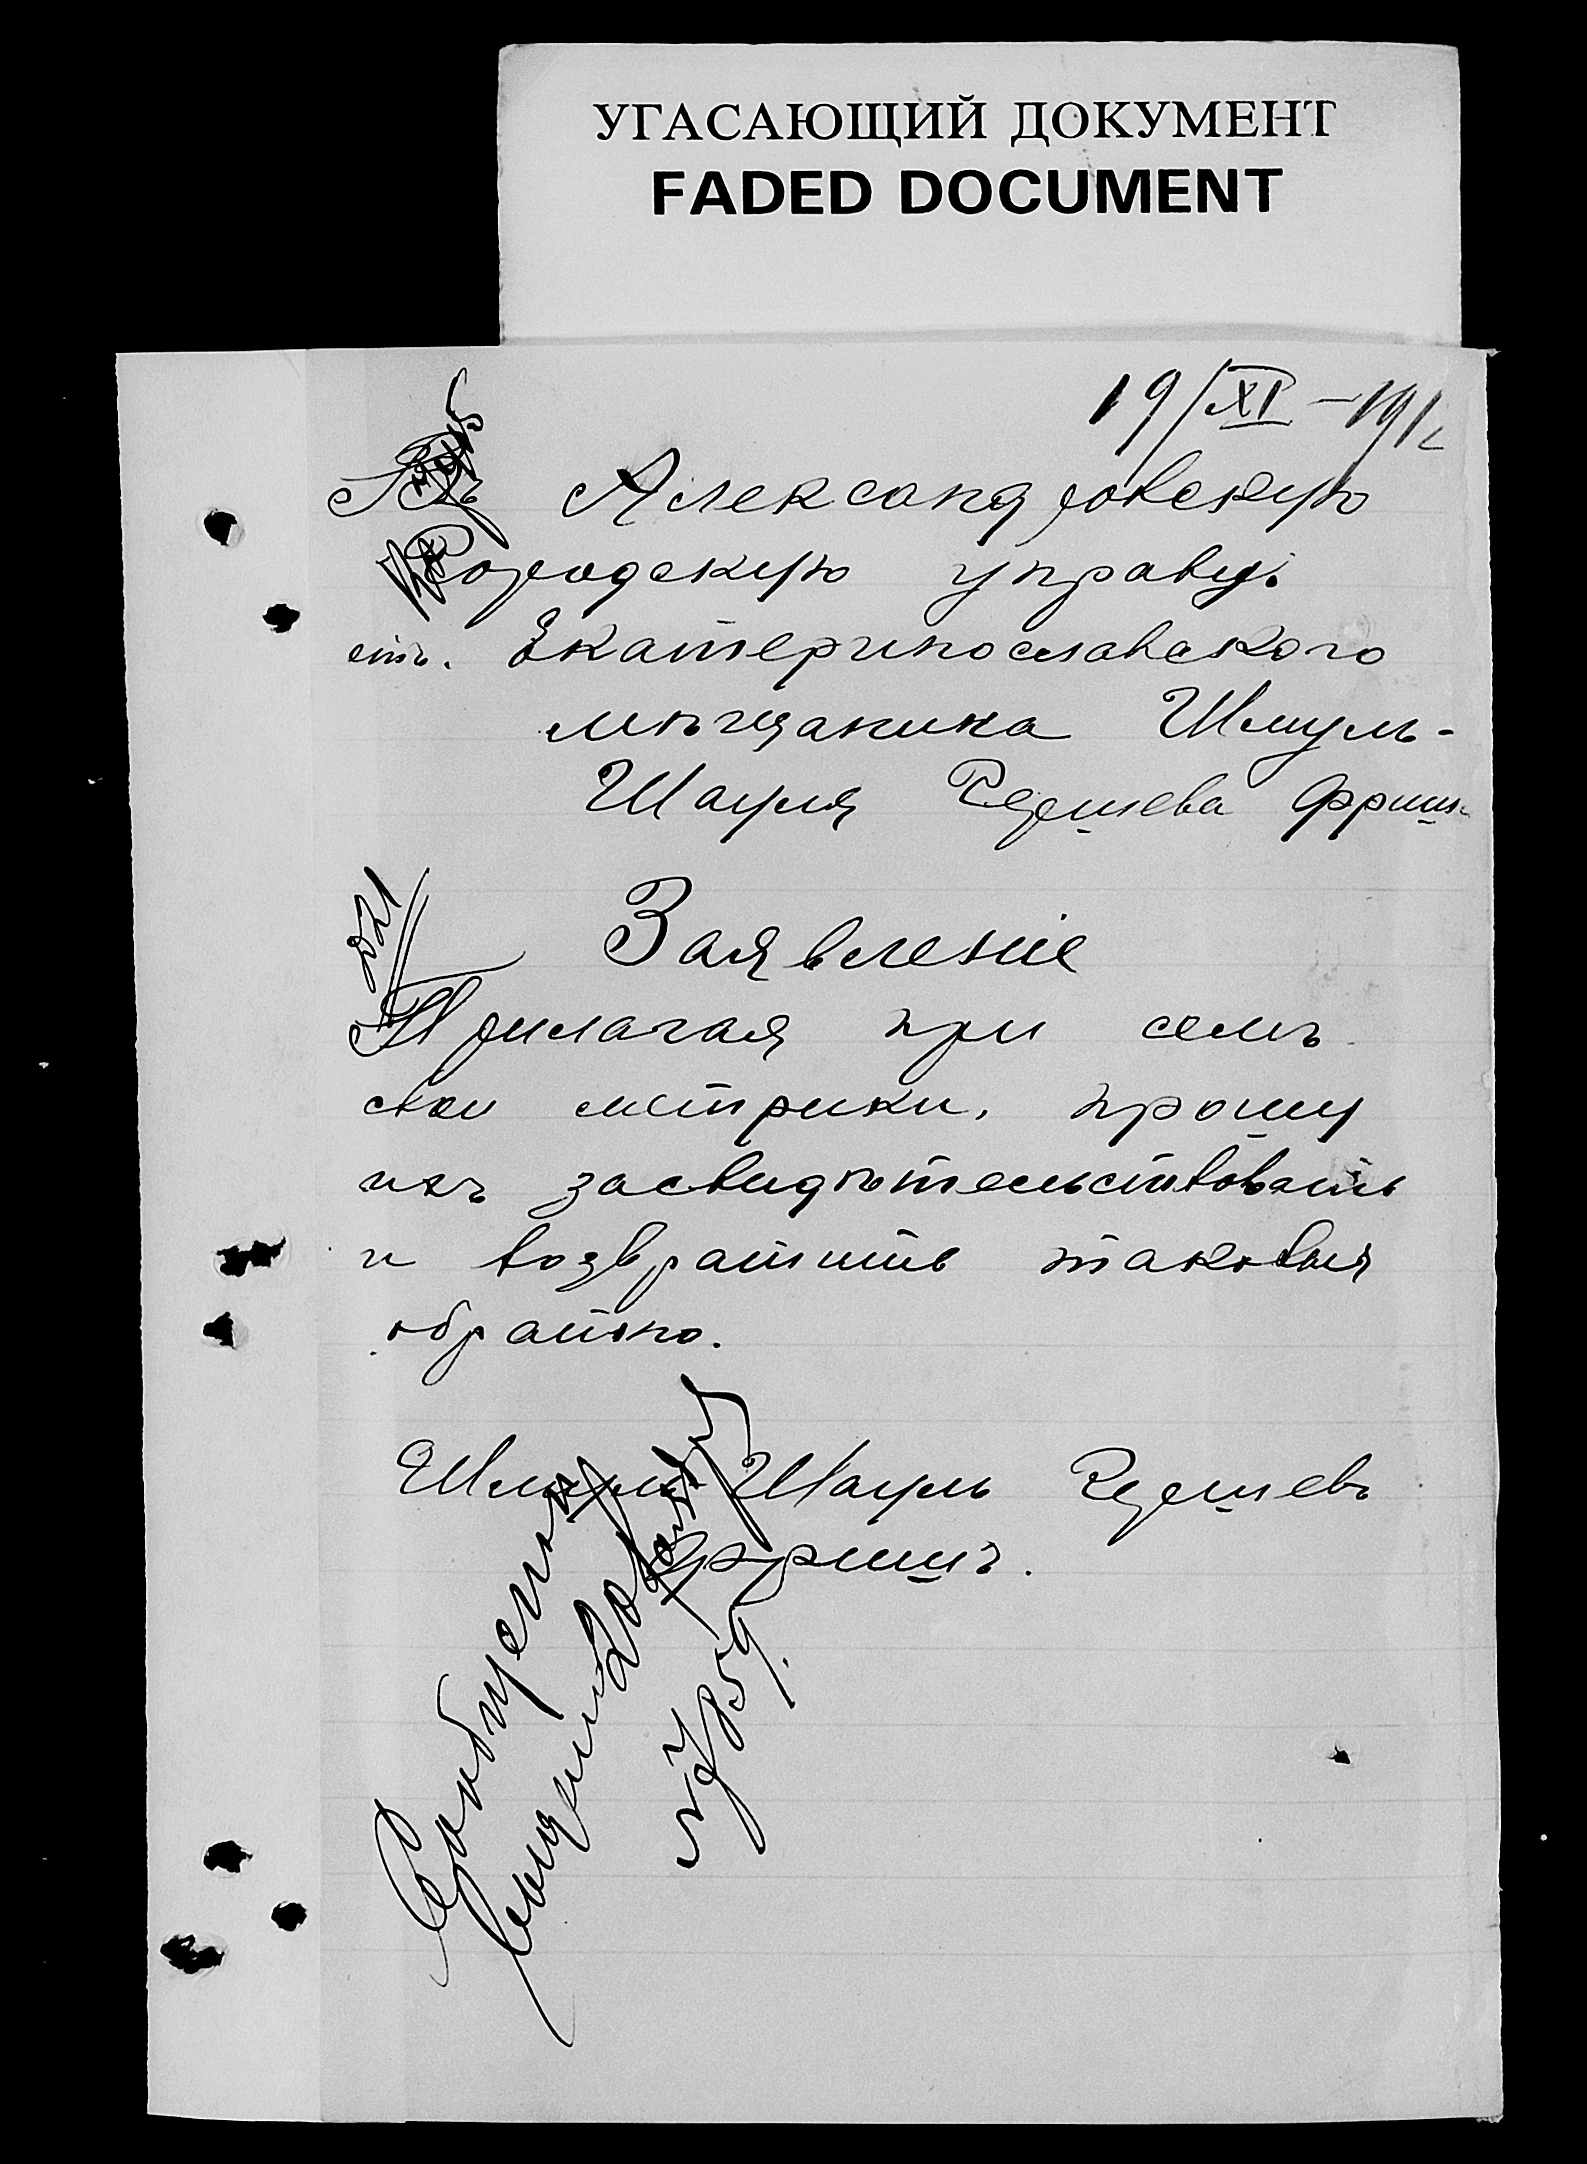 УГАСАЮЩИЙ ДОКУМЕНТ
FADED DOCUMENT
19/XI – 191
Въ Александровскую
Городскую управу
отъ. Екатеринославскаго
мѣщанина Шмуль-
Шауля Фриш
Заявленіе
Прилагая при семъ
свои метрики, прошу
ихъ засвидѣтельствовать
и возвратить таковыя
обратно.
Шмуль-Шауль
Фришъ.